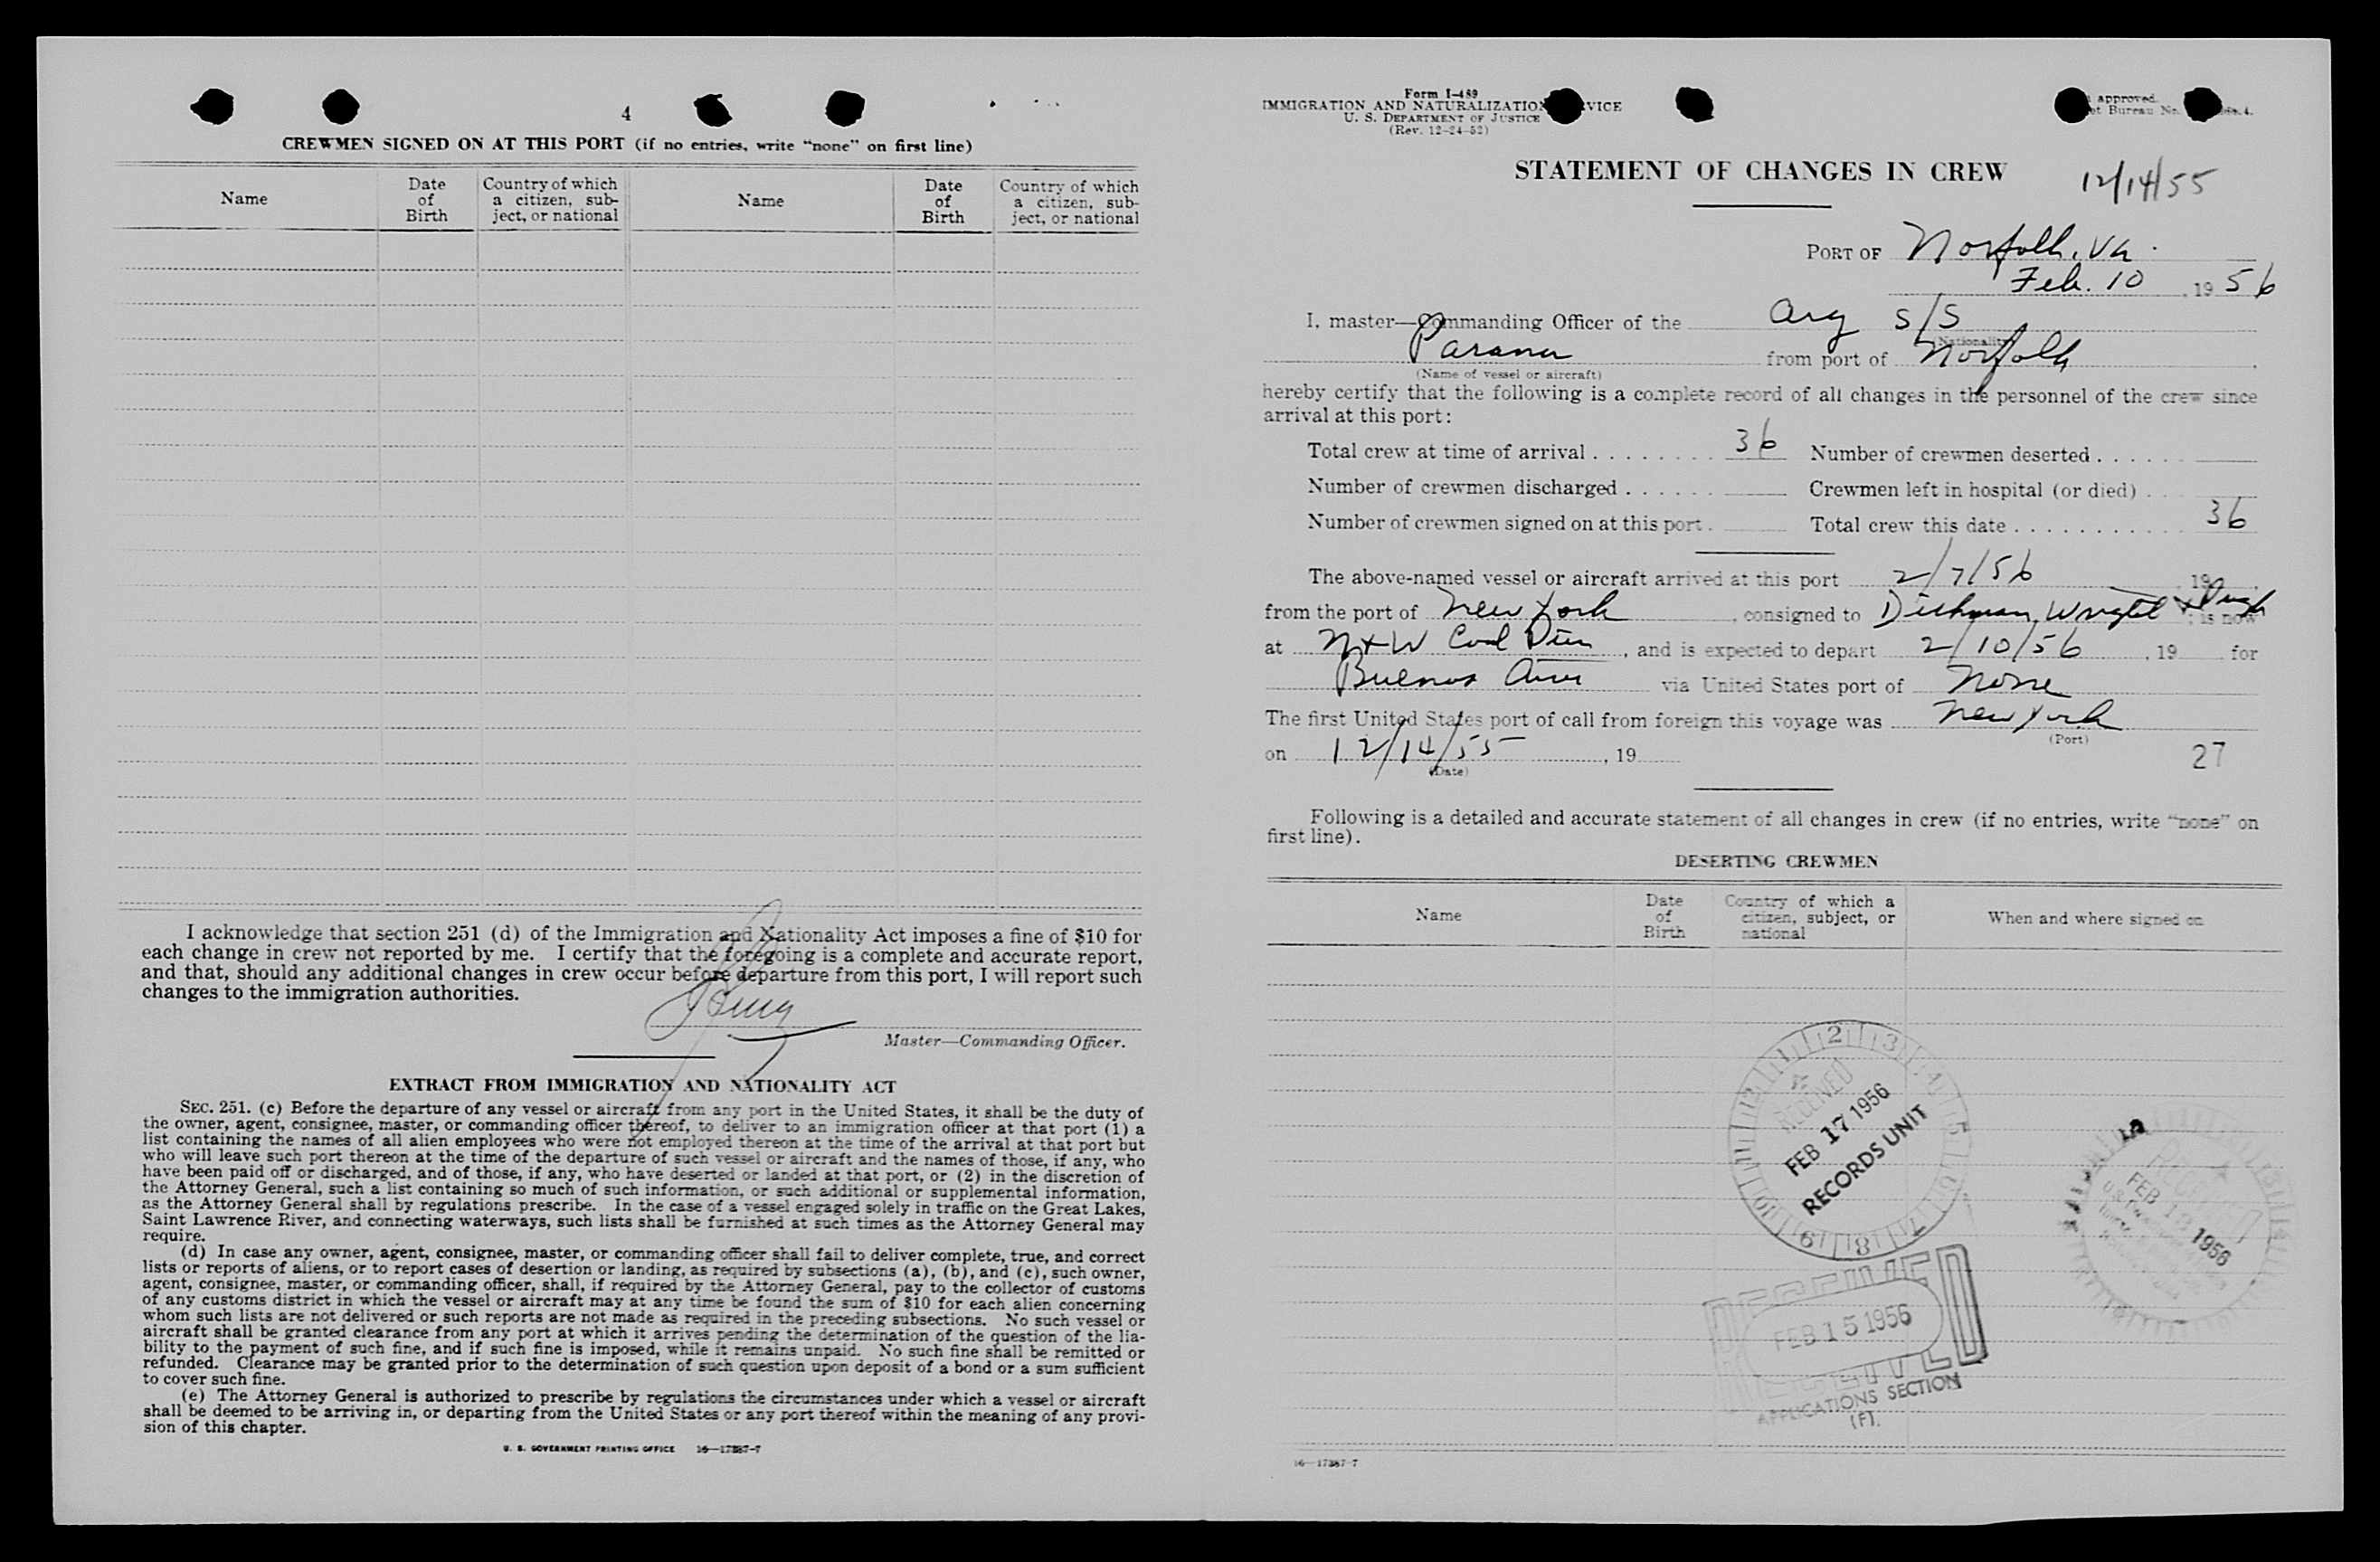 4
CREWMEN SIGNED ON AT THIS PORT (if no entries, write “none” on first line)
Name
Date of Birth
Country of which a citizen, sub-ject, or national
Name
Date of Birth
Country of which a citizen, sub-ject, or national
I acknowledge that section 251 (d) of the Immigration and Nationality Act imposes a fine of $10 for
each change in crew not reported by me. I certify that the foregoing is a complete and accurate report,
and that, should any additional changes in crew occur before departure from this port, I will report such
changes to the immigration authorities.
Master—Commanding Officer.
EXTRACT FROM IMMIGRATION AND NATIONALITY ACT
SEC. 251. (c) Before the departure of any vessel or aircraft from any port in the United States, it shall be the duty of
the owner, agent, consignee, master, or commanding officer thereof, to deliver to an immigration officer at that port (1) a
list containing the names of all alien employees who were not employed thereon at the time of the arrival at that port but
who will leave such port thereon at the time of the departure of such vessel or aircraft and the names of those, if any, who
have been paid off or discharged, and of those, if any, who have deserted or landed at that port, or (2) in the discretion of
the Attorney General, such a list containing so much of such information, or such additional or supplemental information,
as the Attorney General shall by regulations prescribe. In the case of a vessel engaged solely in traffic on the Great Lakes,
Saint Lawrence River, and connecting waterways, such lists shall be furnished at such times as the Attorney General may
require.
(d) In case any owner, agent, consignee, master, or commanding officer shall fail to deliver complete, true, and correct
lists or reports of aliens, or to report cases of desertion or landing, as required by subsections (a), (b), and (c), such owner,
agent, consignee, master, or commanding officer, shall, if required by the Attorney General, pay to the collector of customs
of any customs district in which the vessel or aircraft may at any time be found the sum of $10 for each alien concerning
whom such lists are not delivered or such reports are not made as required in the preceding subsections. No such vessel or
aircraft shall be granted clearance from any port at which it arrives pending the determination of the question of the lia-
bility to the payment of such fine, and if such fine is imposed, while it remains unpaid. No such fine shall be remitted or
refunded. Clearance may be granted prior to the determination of such question upon deposit of a bond or a sum sufficient
to cover such fine.
(e) The Attorney General is authorized to prescribe by regulations the circumstances under which a vessel or aircraft
shall be deemed to be arriving in, or departing from the United States or any port thereof within the meaning of any provi-
sion of this chapter.
U. S. GOVERNMENT PRINTING OFFICE 16—17387-7
Form I-489
IMMIGRATION AND NATURALIZATION
U. S. DEPARTMENT OF JUSTICE
(Rev. 12-24-52)
approved.
Bureau No.
STATEMENT OF CHANGES IN CREW
12/14/55
PORT OF Norfolk, Va.
Feb. 10, 1956
I, master—Commanding Officer of the Arg S/S
(Nationality)
Parana from port of Norfolk
(Name of vessel or aircraft)
hereby certify that the following is a complete record of all changes in the personnel of the crew since
arrival at this port:
Total crew at time of arrival . . . . . . . . 36 Number of crewmen deserted . . . . . .
Number of crewmen discharged . . . . . . Crewmen left in hospital (or died) . . .
Number of crewmen signed on at this port . Total crew this date . . . . . . . . . . . . 36
The above-named vessel or aircraft arrived at this port 2/7/56, 19
from the port of New York, consigned to Dichman, Wright & Pugh; is now
at N+W Coal Pier, and is expected to depart 2/10/56, 19 for
Buenos Aires via United States port of None
The first United States port of call from foreign this voyage was New York
(Port)
on 12/14/55, 19
(Date)
27
Following is a detailed and accurate statement of all changes in crew (if no entries, write “none” on
first line).
DESERTING CREWMEN
Name
Date of Birth
Country of which a citizen, subject, or national
When and where signed on
RECEIVED
FEB 17 1956
RECORDS UNIT
RECEIVED
FEB 15 1956
APPLICATIONS SECTION
(F).
RECEIVED
FEB 18 1956
16—17387-7